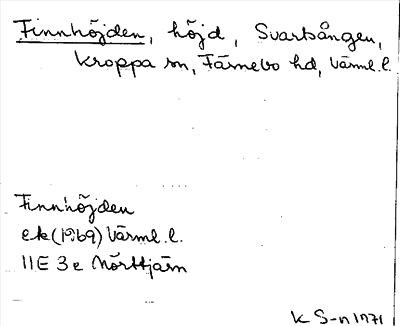 Finnhöjden, höjd, Svartsången,
Kroppa sn, Färnebo hd, Värml. l.
Finnhöjden
ek (1969) Värml. l.
11E 3e Mörttjärn
K S-n 1971